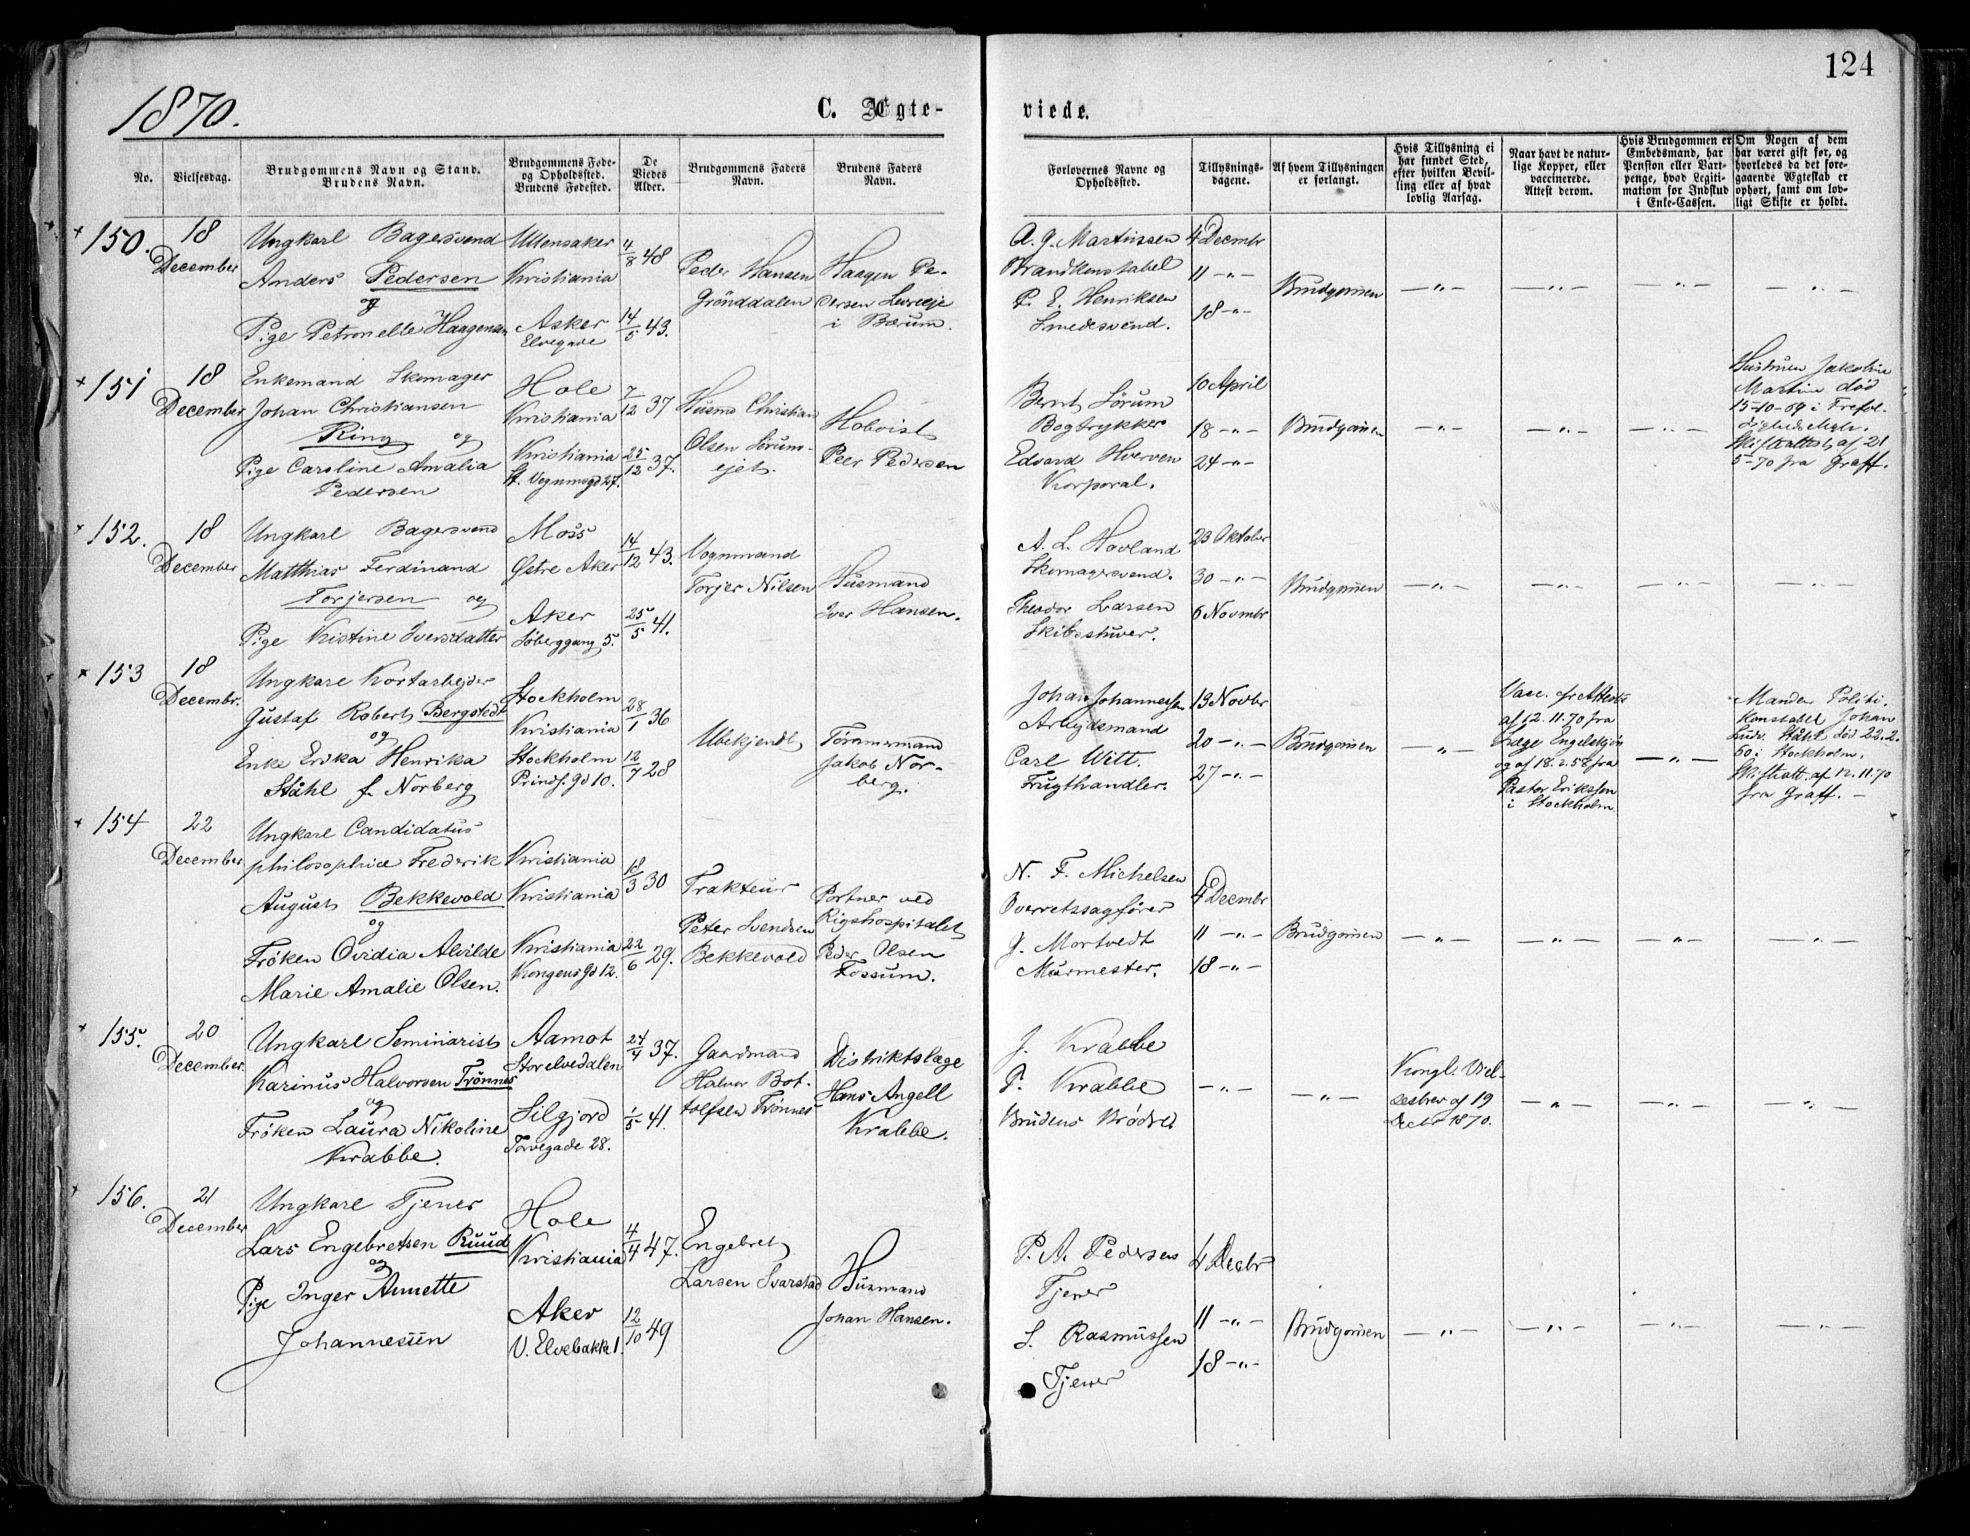 124
1870.
C. Ægte-
viede.
No.
Vielsesdag.
Brudgommens Navn og Stand.
Brudens Navn.
Brudgommens Føde-
og Opholdssted.
Brudens Fødested.
De
Viedes
Alder.
Brudgommens Faders
Navn.
Brudens Faders
Navn.
Forlovernes Navne og
Opholdssted.
Tillysnings-
dagene.
Af hvem Tillysningen
er forlangt.
Hvis Tillysning ei
har fundet Sted,
efter hvilken Bevil-
ling eller af hvad
lovlig Aarsag.
Naar havt de natur-
lige Kopper, eller
vaccinerede.
Attest derom.
Hvis Brudgommen er
Embedsmand, har
Pension eller Vart-
penge, hvad Legiti-
mation for Indskud
i Enke-Cassen.
Om Nogen af dem
har været gift før, og
hvorledes da det fore-
gaaende Ægteskab er
ophørt, samt om lov-
ligt Skifte er holdt.
150.
18
December
Ungkarl Bagersvend
Anders Pedersen
og
Pige Petronelle Haagensen
Ullensaker
Kristiania
Asker
Elvegade
4/8 48
14/5 43.
Peder Hansen
Grönddalen
Haagen Pe-
dersen
i Bærum.
A. G. Martinssen
Brandkonstabel
P. E. Henriksen
Smedesvend.
4 Decembr
11 -"-
18 -"-
Brudgomen
-"- -"- -"- -"-
151
18
December
Enkemand Skomager
Johan Christiansen
Ring og
Pige Caroline Amalia
Pedersen
Hole
Kristiania
Kristiania
St. Vognmgd 27.
7/12 37
25/12 37.
Husmd Christian
Olsen Sørum-
ejet.
Hoboist
Peer Pedersen
Bernt Sørum
Bogtrykker
Edvard Hverven
Korporal.
10 April
18 -"-
24 -"-
Brudgomen
-"- -"- -"-
Hustruen Jakobine
Martine död
15-10-69 i Trefol-
dighedsMgh.
Skifteattest af 21
5-70 fra Graff.
152.
18
December
Ungkarl Bagersvend
Matthias Ferdinand
Torjersen og
Pige Kristine Iversdatter
Moss
Østre Aker
Aker
Søberggang 5.
14/12 43.
25/5 41.
Vognmand
Torjer Nilsen
Husmand
Iver Hansen.
A. L. Hovland
Skomagersvend.
Theodor Larsen
Skibsstuver.
23 Oktober
30 -"-
6 Novmbr
Brudgomen
-"- -"- -"- -"-
153
18
Decembr.
Ungkarl Kortarbejder
Gustaf Robert Bergstedt
og
Enke Erika Henrika
Ståhl f. Norberg
Stockholm
Kristiania
Stockholm
Prinds. Gd 10.
28/1 36
12/7 28
Ubekjendt
Tömmermand
Jakob Nor-
berg.
Johan Johannessen
Arbejdsmand
Carl Witt.
Frugthandler.
13 Novbr
20 -"-
27 -"-
Brudgomen
-"-
Vacc.
af 12.11.70 fra
Læge Engelskjön
og af 18.2.58 fra
Pastor Erikssen
i Stockholm
-"-
Manden Politi-
konstabel Johan
Ludv. Ståhl död 22.2.
60 i Stockholm.
Skifteatt. af 12.11.70
fra Graff. -
154
22
December
Ungkarl Candidatus
philosophiæ Frederik
August Bekkevold
og
Fröken Ovidia Alvilde
Marie Amalie Olsen.
Kristiania
Kristiania
Kristiania
Kongens Gd 12.
18/3 30
22/6 29.
Trakteur
Peter Svendsen
Bekkevold
Portner ved
Rigshospitalet
Peder Olsen
Fossum.
N. F. Michelsen
Overretssagfører
J. Mortvedt
Murmester.
4 Decembr
11 -"-
18 -"-
Brudgomen
-"- -"- -"- -"-
155.
20
December.
Ungkarl Seminarist
Karinus Halvorsen Trönnes
og
Fröken Laura Nikoline
Krabbe.
Aamot
Storelvedalen
Silgjord
Torvegade 28.
24/4 37.
1/5 41.
Gaardmand
Halvor Bot-
tolfsen Trönnes
Distriktslæge
Hans Angell
Krabbe.
J. Krabbe
P. Krabbe
Brudens Brödre.
-"- -"-
Kongl. Viel-
sesbrev af 19
Decbr 1870.
-"- -"- -"-
156.
21
December
Ungkarl Tjener
Lars Engebretsen Ruud
og
Pige Inger Annette
Johannesen
Hole
Kristiania
Aker
V. Elvebakke 1.
4/4 47.
12/10 49
Engebret
Larsen Svarstad
Husmand
Johan Hansen.
P. A. Pedersen
Tjener
L. Rasmussen
Tjener
4 Decbr
11 -"-
18 -"-
Brudgomen
-"- -"- -"- -"-